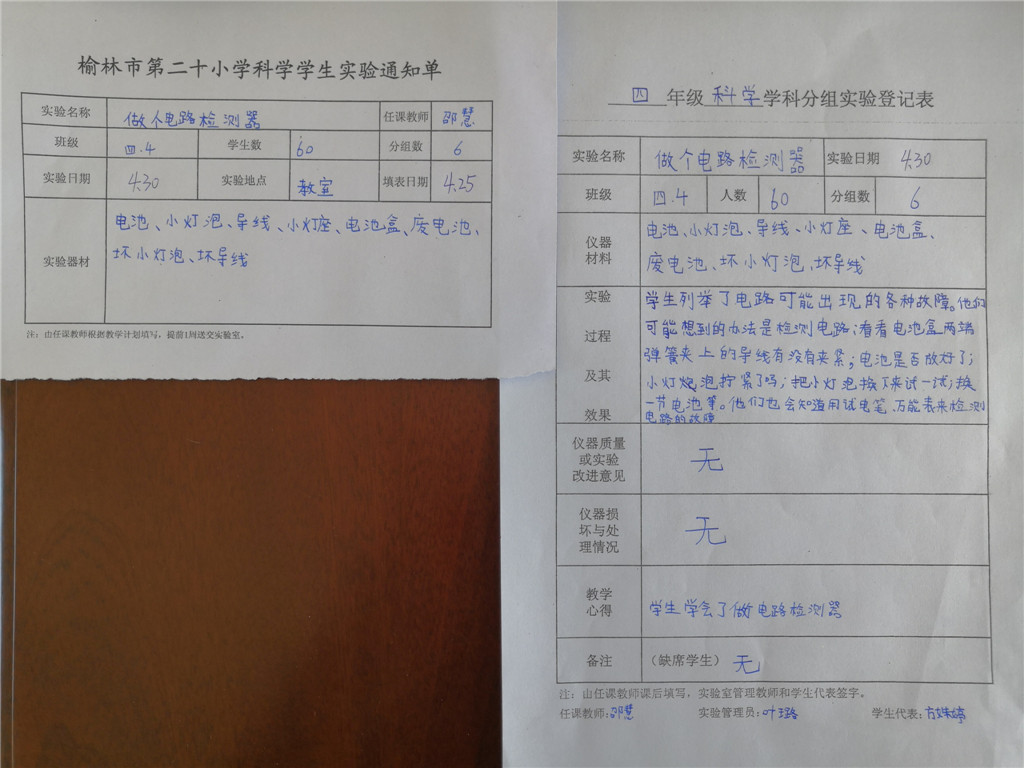 榆林市第二十小学科学学生实验通知单
实验名称 做个电路检测器 任课教师 邵慧
班级 四.4 学生数 60 分组数 6
实验日期 4.30 实验地点 教室 填表日期 4.25
实验器材 电池、小灯泡、导线、小灯座、电池盒、废电池、
坏小灯泡、坏导线
注：由任课教师根据教学计划填写，提前1周送交实验室。
四 年级 科学 学科分组实验登记表
实验名称 做个电路检测器 实验日期 4.30
班级 四.4 人数 60 分组数 6
仪器材料 电池、小灯泡、导线、小灯座、电池盒、
废电池、坏小灯泡、坏导线
实验过程及其效果 学生列举了电路可能出现的各种故障。他们
可能想到的办法是检测电路；看看电池盒两端
弹簧夹上的导线有没有夹紧；电池是否放好了；
小灯泡拧紧了吗；把小灯泡换下来试一试；换
一节电池等。他们也会知道用试电笔、万能表来检测
电路的故障
仪器质量或实验改进意见 无
仪器损坏与处理情况 无
教学心得 学生学会了做电路检测器
备注 （缺席学生） 无
注：由任课教师课后填写，实验室管理教师和学生代表签字。
任课教师：邵慧 实验管理员：叶璐 学生代表：方姝婷